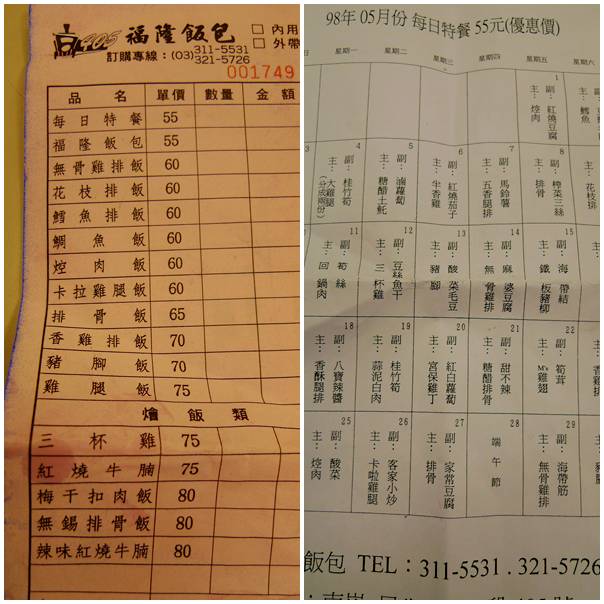 405 福隆飯包
□ 內用
□ 外帶
訂購專線:(03)311-5531
321-5726
001749
品名 單價 數量 金額
每日特餐 55
福隆飯包 55
無骨雞排飯 60
花枝排飯 60
鱈魚排飯 60
鯛魚飯 60
焢肉飯 60
卡拉雞腿飯 60
排骨飯 65
香雞排飯 70
豬腳飯 70
雞腿飯 75
燴飯類
三杯雞 75
紅燒牛腩 75
梅干扣肉飯 80
無錫排骨飯 80
辣味紅燒牛腩 80
98年 05月份 每日特餐 55元(優惠價)
星期一 星期二 星期三 星期四 星期五 星期六
1
副:紅燒豆腐
主:焢肉
主:鱈魚
3
4
副:桂竹筍
主:大雞腿
(分成兩份)
5
副:滷蘿蔔
主:糖醋土魠
6
副:紅燒茄子
主:半香雞
7
副:馬鈴薯
主:五香腿排
8
副:榨菜三絲
主:排骨
主:花枝排
11
副:筍絲
主:回鍋肉
12
副:豆絲魚干
主:三杯雞
13
副:酸菜毛豆
主:豬腳
14
副:麻婆豆腐
主:無骨雞排
15
副:海帶結
主:鐵板豬柳
18
副:八寶辣醬
主:香酥腿排
19
副:桂竹筍
主:蒜泥白肉
20
副:紅白蘿蔔
主:宮保雞丁
21
副:甜不辣
主:糖醋排骨
22
副:筍茸
主:M's雞翅
25
副:酸菜
主:焢肉
26
副:客家小炒
主:卡啦雞腿
27
副:家常豆腐
主:排骨
28
端午節
29
副:海帶筋
主:無骨雞排
飯包 TEL:311-5531.321-5726